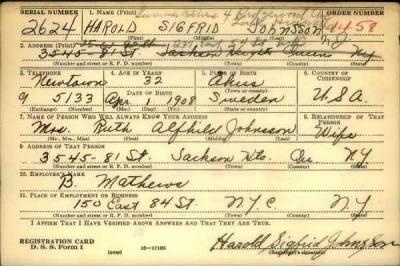 SERIAL NUMBER 1. NAME (Print) ORDER NUMBER
2624 HAROLD SIGFRID JOHNSSON 1458
(First) (Middle) (Last)
2. ADDRESS (Print)
3545-81 St Jackson Queens NY
(Number and street or R. F. D. number) (Town) (County) (State)
3. TELEPHONE 4. AGE IN YEARS 5. PLACE OF BIRTH 6. COUNTRY OF CITIZENSHIP
Newtown 32 Ahus
DATE OF BIRTH
9 5133 Apr 1908 Sweden U.S.A.
(Exchange) (Number) (Mo.) (Day) (Yr.) (State or country)
7. NAME OF PERSON WHO WILL ALWAYS KNOW YOUR ADDRESS 8. RELATIONSHIP OF THAT PERSON
Mrs. Ruth Alfhild Johnsson Wife
(Mr., Mrs., Miss) (First) (Middle) (Last)
9. ADDRESS OF THAT PERSON
3545-81 St Jackson Hts. Qu. N.Y.
(Number and street or R. F. D. number) (Town) (County) (State)
10. EMPLOYER'S NAME
B. Mathews
11. PLACE OF EMPLOYMENT OR BUSINESS
150 East 84 St N.Y.C. NY
(Number and street or R. F. D. number) (Town) (County) (State)
I AFFIRM THAT I HAVE VERIFIED ABOVE ANSWERS AND THAT THEY ARE TRUE.
REGISTRATION CARD
D. S. S. Form 1 (over) 16-17105
Harold Sigfrid Johnsson
(Registrant's signature)